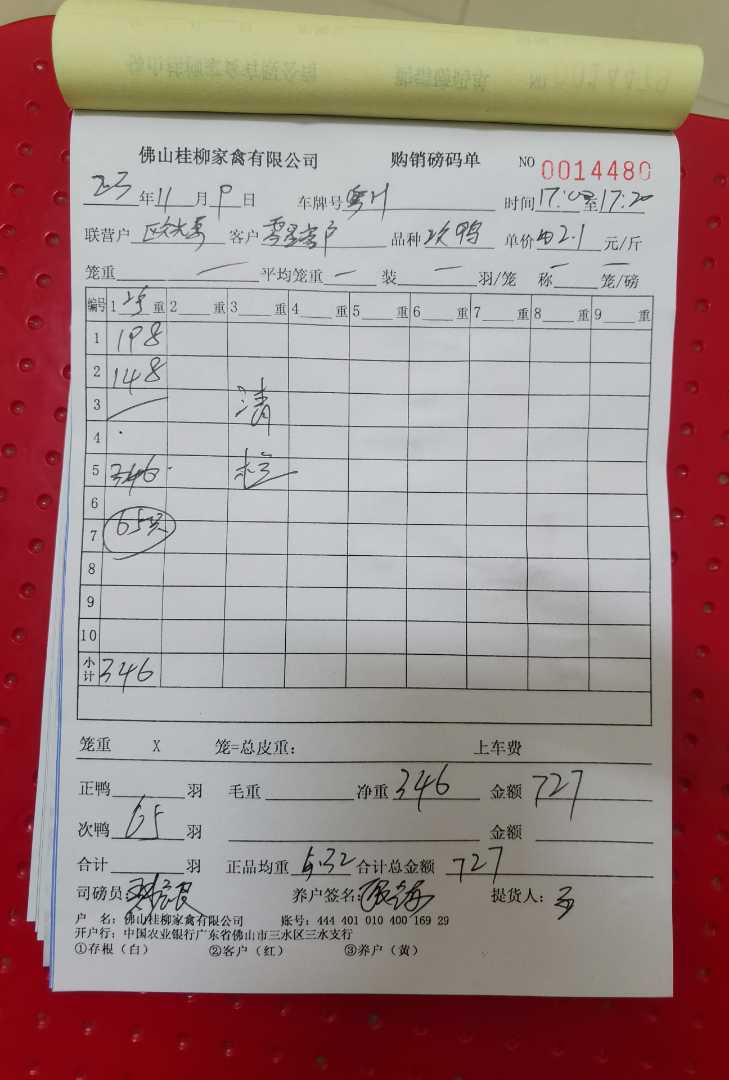 佛山桂柳家禽有限公司 购销磅码单 NO 0014480
23年11月9日 车牌号 时间17:00至17:20
联营户 客户零星客户 品种次鸭 单价2.1元/斤
笼重 一 平均笼重 一 装 一 羽/笼 称 一 一 笼/磅
编号 1 净 重 2 重 3 重 4 重 5 重 6 重 7 重 8 重 9 重
1 198
2 148
3 清
4
5 346
6
7 65只
8
9
10
小计 346
笼重 X 笼=总皮重: 上车费
正鸭 羽 毛重 净重346 金额727
次鸭65羽 金额
合计 羽 正品均重5.32 合计总金额727
司磅员: 养户签名: 提货人:
户 名: 佛山桂柳家禽有限公司 账号: 444 401 010 400 169 29
开户行: 中国农业银行广东省佛山市三水区三水支行
①存根(白) ②客户(红) ③养户(黄)